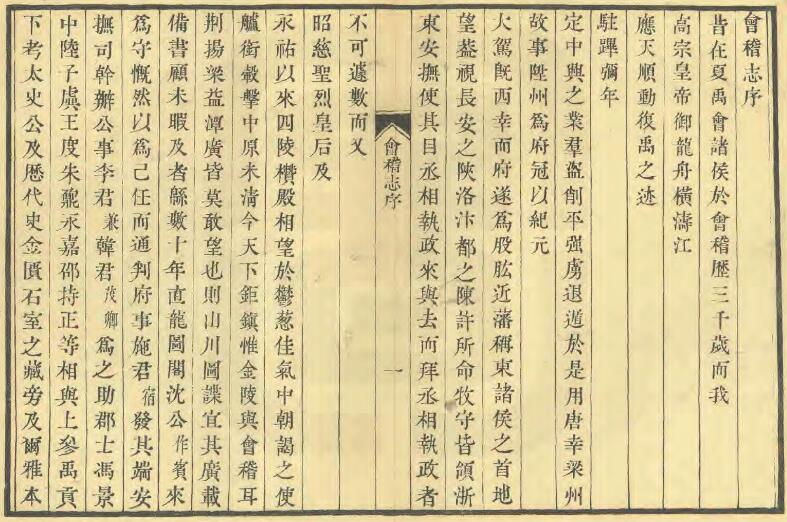 會稽志序
昔在夏禹會諸侯於會稽歷三千歲而我
高宗皇帝御龍舟橫濤江
應天順動復禹之迹
駐蹕彌年
定中興之業羣盜削平强虜退遁於是用唐幸梁州
故事陞州爲府冠以紀元
大駕旣西幸而府遂爲股肱近藩稱東諸侯之首地
望蓋視長安之陝洛汴都之陳許所命牧守皆領浙
東安撫使其自丞相執政來與去而拜丞相執政者
會稽志序
一
不可遽數而又
昭慈聖烈皇后及
永祐以來四陵欑殿相望於鬱葱佳氣中朝謁之使
艫銜轂擊中原未清今天下鉅鎭惟金陵與會稽耳
荆揚梁益潭廣皆莫敢望也則山川圖諜宜其廣載
備書顧未暇及者緜數十年直龍圖閣沈公作賓來
爲守慨然以爲己任而通判府事施君宿發其端安
撫司幹辦公事李君兼韓君茂卿爲之助郡士馮景
中陸子虡王度朱鼐永嘉邵持正等相與上參禹貢
下考太史公及歷代史金匱石室之藏旁及爾雅本